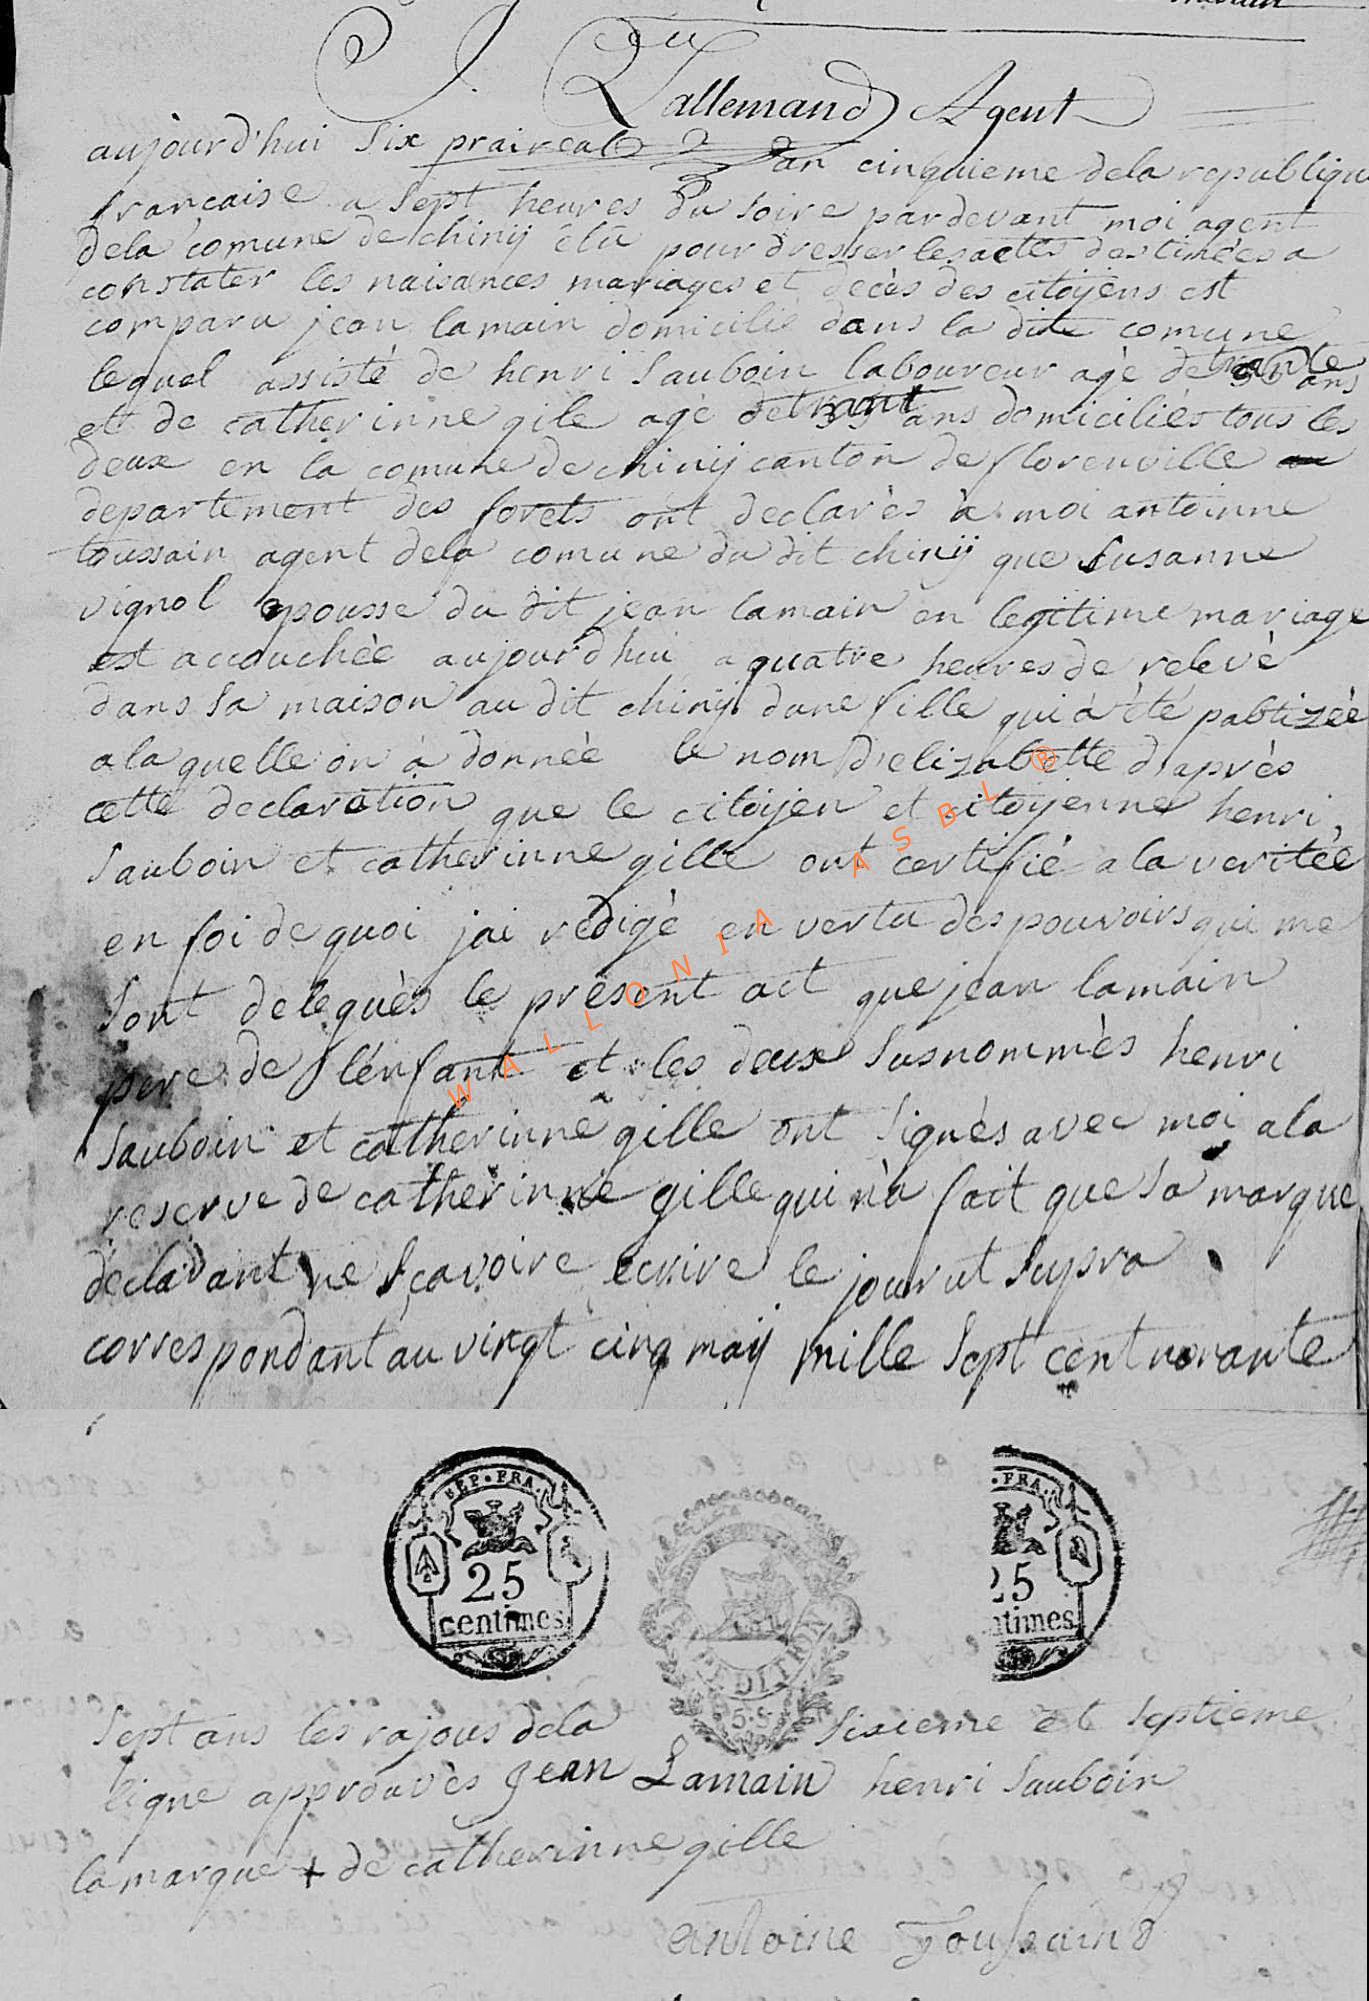 J. Lallemand Agent
aujourd'hui six praireal an cinquieme dela republique
francaise a sept heures du soire pardevant moi agent
dela comune de chinij élu pour dresser les actes destinées a
constater les naisances mariages et decès des citoijens est
comparu jean lamain domicilié dans la dite comune
lequel assisté de henri sauboin laboureur agé de trante ans
et de catherinne gile agé de trant ans domiciliés tous les
deux en la comune de chinij canton de florenville
departement des forets ont declarès à moi antoinne
toussain agent dela comune du dit chinij que susanne
vignol epousse du dit jean lamain en legitime mariage
est accouchèe aujourdhui a quatre heures de relevè
dans sa maison au dit chinij dune fille qui à été pabtizèè
a la quelle on à donnèè le nom d'elizabette d'après
cette declaration que le citoijen et citoyenne henri
sauboin et catherinne gille ont certifié a la veritéé
en foi de quoi jai redigè en vertu des pouvoirs qui me
sont deleguès le prèsent act que jean lamain
pere de l'énfant et les deux susnommès henri
sauboin et catherinne gille ont signès avec moi a la
reserve de catherinne gille qui n'a fait que sa marque
déclarant ne sçavoire ecrire le jour ut supra
correspondant au vingt cinq maij mille sept cent novante
WALLONIA ASBL ®
REP. FRA.
25
centimes
. FRA.
25
ntimes
5.S
sept ans les rajous dela sixieme et septieme
ligne approuvès Jean Lamain henri sauboin
la marque + de catherinne gille
antoine Toussaind